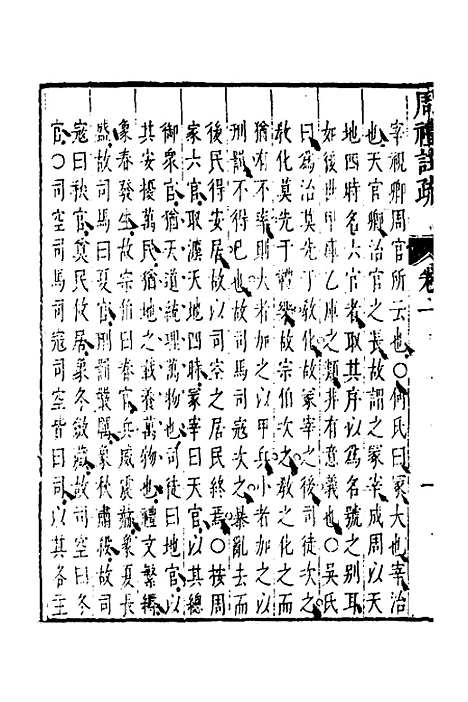 周禮註疏 卷一 一
宰視卿周官所云也○何氏曰冢大也宰治
也天官卿治官之長故謂之冢宰成周以天
地四時名六官者取其序以爲名號之别耳
如後世甲庫乙庫之類非有意義也○吳氏
曰爲治莫先于敎化故冢宰之後司徒次之
敎化莫先于禮樂故宗伯次之敎之化之而
猶有不率則大者加之以甲兵小者加之以
刑罰不得已也故司馬司寇次之暴亂去而
後民得安居故以司空之居民終焉○按周
家六官取灋天地四時冢宰曰天官以其總
御衆官猶天道統理萬物也司徒曰地官以
其安擾萬民猶地之載養萬物也禮文繁縟
象春發生故宗伯曰春官兵威震赫象夏長
盛故司馬曰夏官刑罰嚴厲象秋肅殺故司
寇曰秋官奠民攸居象冬斂藏故司空曰冬
官○司空司馬司寇司空皆曰司以其各主